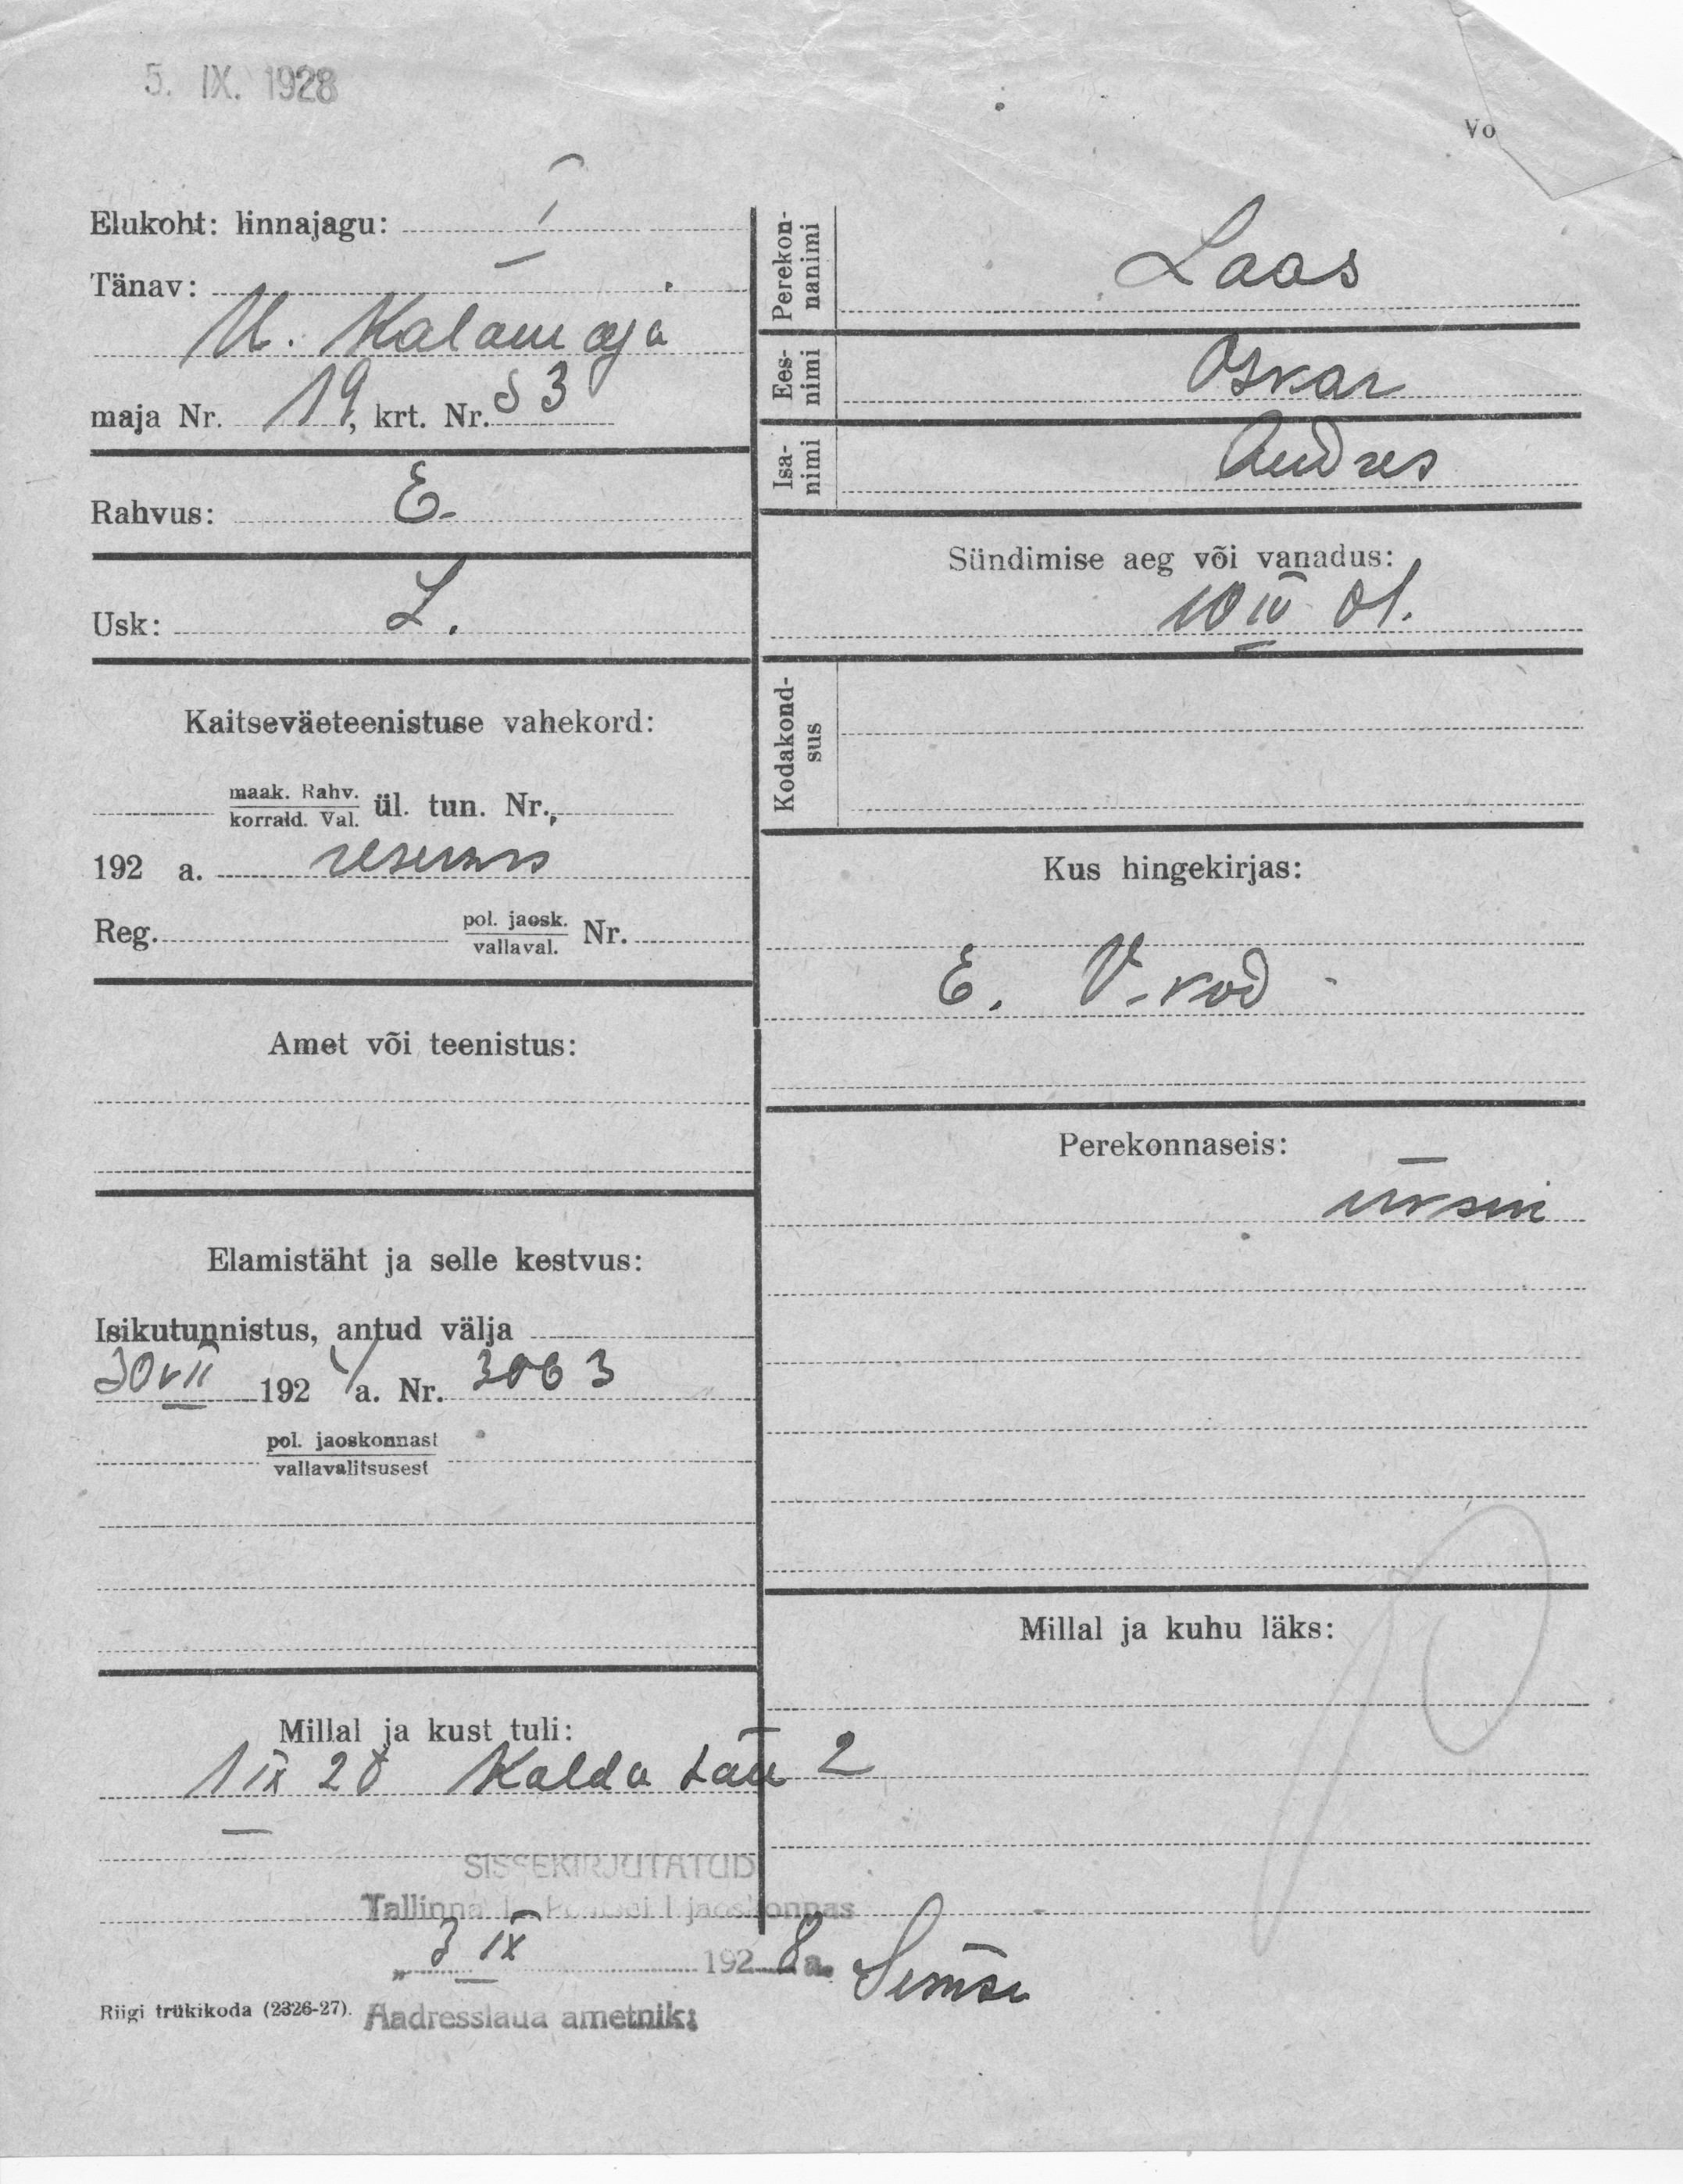 5. IX. 1928
Vo
Elukoht: linnajagu: I
Tänav:
U. Kalamaja
maja Nr. 19, krt. Nr. 53
Rahvus: E.
Usk: L.
Kaitseväeteenistuse vahekord:
maak. Rahv.
korrald. Val. ül. tun. Nr.
192 a. reservis
Reg. pol. jaosk.
vallaval. Nr.
Amet või teenistus:
Elamistäht ja selle kestvus:
Isikutunnistus, antud välja
30 VII 192 a. Nr. 3063
pol. jaoskonnast
vallavalitsusest
Millal ja kust tuli:
1 IX 28 Kalda tän 2
Perekon-
nanimi
Laas
Ees-
nimi
Oskar
Isa-
nimi
Andres
Sündimise aeg või vanadus:
10 IV 01.
Kodakond-
sus
Kus hingekirjas:
E. V. kod
Perekonnaseis:
üksin
Millal ja kuhu läks:
SISSEKIRJUTATUD
Tallinna Politsei I jaoskonnas
„ 3 IX 1928 a.
Riigi trükikoda (2326-27).
Aadresslaua ametnik: